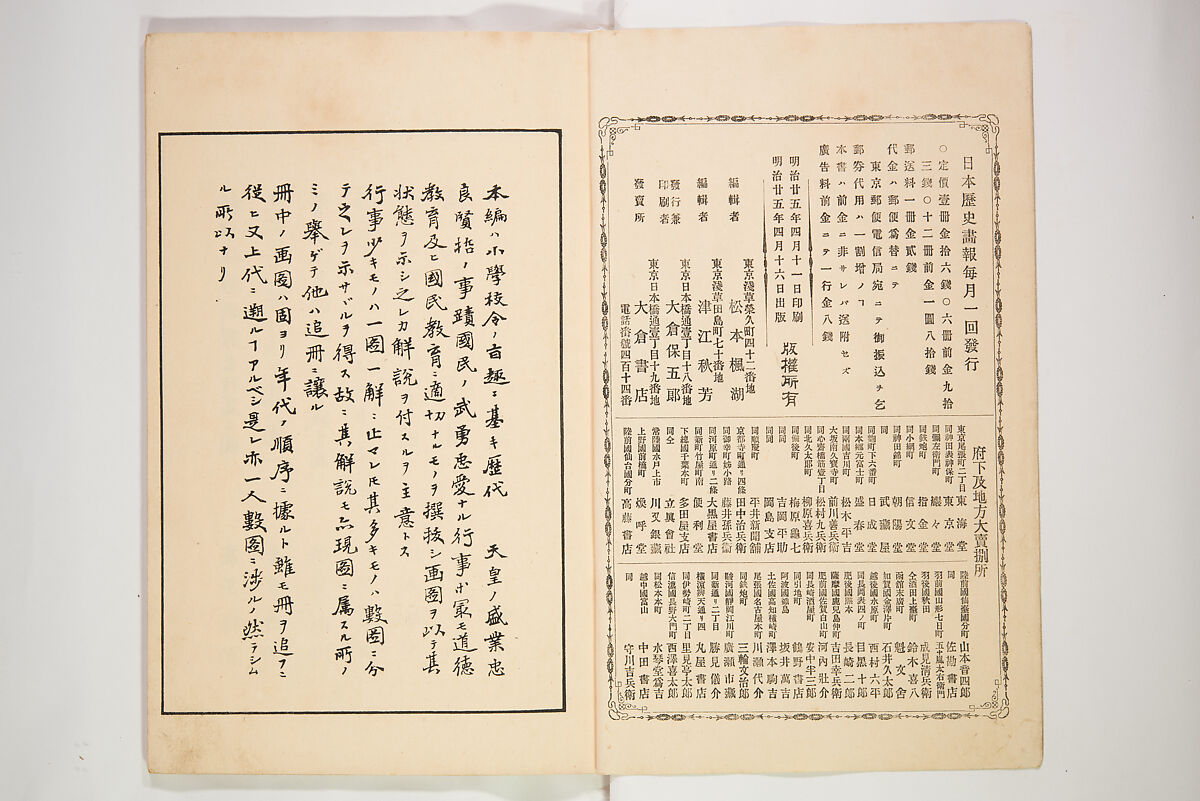 日本歷史畫報每月一回發行
○定價壹冊金拾六錢○六冊前金九拾
三錢○十二冊前金一圓八拾錢
郵送料一冊金貳錢
代金ハ郵便爲替ニテ
東京郵便電信局宛ニテ御振込ヲ乞
郵劵代用ハ一割增ノヿ
本書ハ前金ニ非サレバ送附セズ
廣告料前金ニテ一行金八錢
明治廿五年四月十一日印刷
明治廿五年四月十六日出版
版權所有
東京淺草榮久町四十二番地
編輯者 松本楓湖
東京淺草田島町七十番地
編輯者 津江秋芳
東京日本橋通壹丁目十八番地
發行兼印刷者 大倉保五郎
東京日本橋通壹丁目十九番地
發賣所 大倉書店
電話番號四百十四番
府下及地方大賣捌所
東京尾張町二丁目 東海堂
同神田表神保町 東京堂
同彌左衛門町 巖々堂
同鉄炮町 指金堂
同小網町 信文堂
同神田錦町 朝陽堂
同 武藏屋
同麴町下六番町 日成堂
同本鄕元富士町 盛春堂
同兩國吉川町 松木平吉
大坂南久寶寺町 前川善兵衛
同心齋橋筋壹丁目 松村九兵衛
同北久太郎町 柳原喜兵衛
同備後町 梅原龜七
同同 吉岡平助
同同 岡島支店
同順慶町 平井新聞舖
京都寺町通り四條 田中治兵衛
同御幸町姉小路 藤井孫兵衛
同河原町通り二條 大黑屋書店
同新町竹屋町南 便利堂
下總國千葉本町 多田屋支店
同仝 立眞會社
常陸國水戶上市 川又銀藏
上野國前橋町 煥呼堂
陸前國仙台國分町 高藤書店
陸前國仙臺國分町 山本音四郎
同 佐勘書店
羽前國山形七日町 五十嵐太右衛門
羽後國秋田 成見清兵衛
仝酒田上臺町 鈴木喜八
函館末廣町 魁文舍
加賀國金澤片町 石井久太郎
越後國水原町 西村六平
同長岡表四ノ町 目黑十郎
肥後國熊本 長崎二郎
薩摩國鹿兒島仲町 吉田幸兵衛
肥前國佐賀白山町 河內壯介
同長崎酒屋町 安中半三郎
同引地町 鶴野書店
阿波國德島 坂井萬吉
土佐國高知種崎町 澤本駒吉
尾張國名古屋本町 川瀨代介
同鉄炮町 三輪文治郎
駿河國靜岡江川町 廣瀨市藏
同新通り二丁目 勝見儀介
橫濱辨天通り四 丸屋書店
同伊勢崎町二丁目 里見亭太郎
信濃國長野大門町 西澤喜太郎
同松本本町 水琴堂爲吉
越中國富山 中田書店
同 守川吉兵衛
本編ハ小學校令ノ旨趣ニ基キ歷代 天皇ノ盛業忠
良賢哲ノ事蹟國民ノ武勇忠愛ナル行事ホ最モ道德
敎育及ヒ國民敎育ニ適切ナルモノヲ撰拔シ画圖ヲ以テ其
狀態ヲ示シ之レカ解說ヲ付スルヲ主意トス
行事少キモノハ一圖一解ニ止マレ𪜈其多キモノハ數圖ニ分
テ之レヲ示サヾルヲ得ス故ニ其解說モ亦現圖ニ属スル所ノ
ミノ擧ゲテ他ハ追冊ニ讓ル
冊中ノ画圖ハ固ヨリ年代ノ順序ニ據ルト雖モ冊ヲ追フニ
從ヒ又上代ニ遡ルヿアルベシ是レ亦一人數圖ニ涉ルノ然ラシム
ル所以ナリ